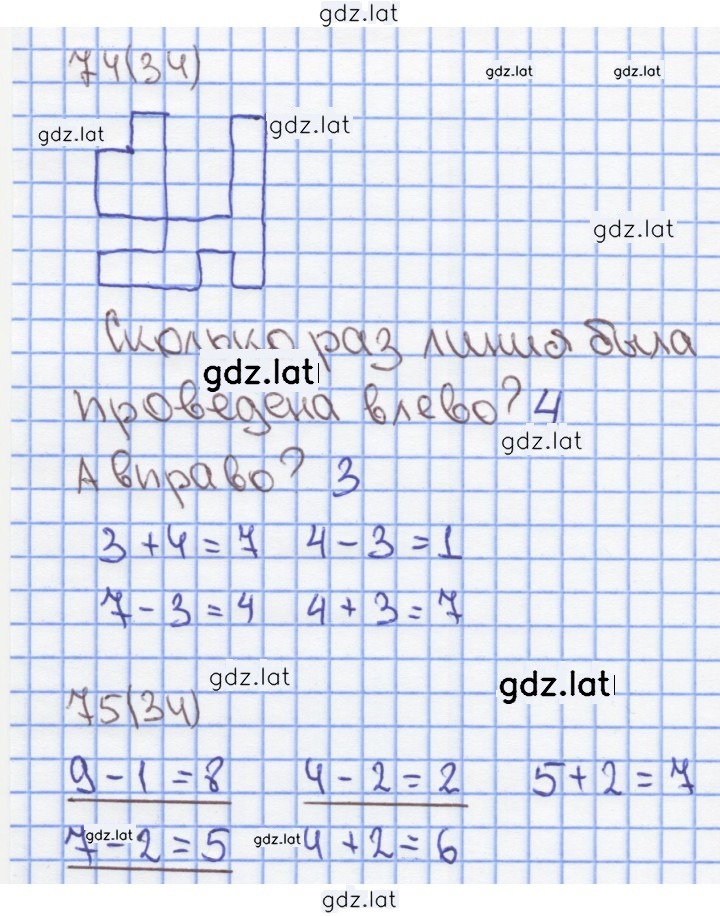 gdz.lat
74(34)
gdz.lat gdz.lat
gdz.lat gdz.lat
gdz.lat
Сколько раз линия была
gdz.lat
проведена влево? 4
gdz.lat
А вправо? 3
3 + 4 = 7 4 - 3 = 1
7 - 3 = 4 4 + 3 = 7
gdz.lat gdz.lat
75(34)
9 - 1 = 8 4 - 2 = 2 5 + 2 = 7
gdz.lat gdz.lat
7 - 2 = 5 4 + 2 = 6
gdz.lat